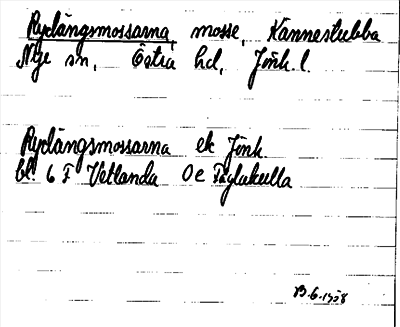 Rydängsmossarna, mosse, Kannestubba
Nye sn, Östra hd, Jönk. l.
Rydängsmossarna ek Jönk.
bl. 6 F Vetlanda 0 e Fåglakulla
B.G. 1958